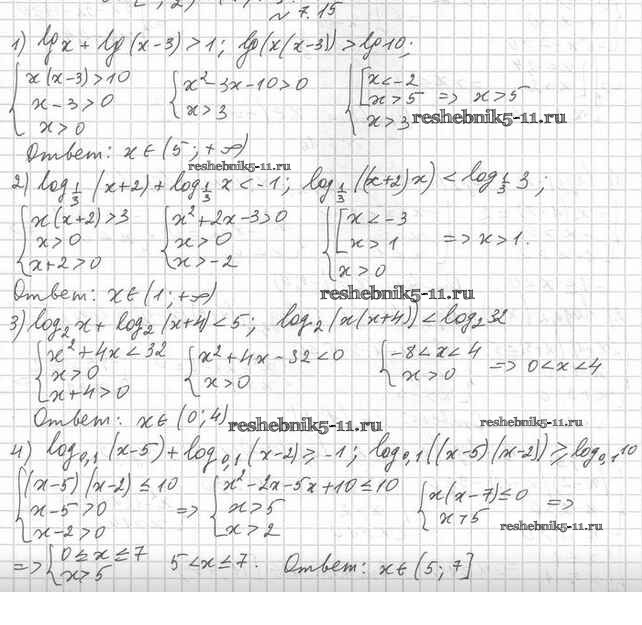 № 7.15
1) lg x + lg (x-3) > 1; lg(x(x-3)) > lg 10;
{ x(x-3) > 10 { x² - 3x - 10 > 0 { [ x < -2
x - 3 > 0 x > 3 x > 5 => x > 5
x > 0 x > 3 reshebnik5-11.ru
Ответ: x ∈ (5; +∞)
reshebnik5-11.ru
2) log_{1/3} (x+2) + log_{1/3} x < -1; log_{1/3} ((x+2)x) < log_{1/3} 3;
{ x(x+2) > 3 { x² + 2x - 3 > 0 { [ x < -3
x > 0 x > 0 x > 1 => x > 1.
x + 2 > 0 x > -2 x > 0
Ответ: x ∈ (1; +∞) reshebnik5-11.ru
3) log₂ x + log₂ (x+4) < 5; log₂ (x(x+4)) < log₂ 32
{ x² + 4x < 32 { x² + 4x - 32 < 0 { -8 < x < 4
x > 0 x > 0 x > 0 => 0 < x < 4
x + 4 > 0
Ответ: x ∈ (0; 4) reshebnik5-11.ru reshebnik5-11.ru
4) log_{0,1} (x-5) + log_{0,1} (x-2) ≥ -1; log_{0,1} ((x-5)(x-2)) ≥ log_{0,1} 10
{ (x-5)(x-2) ≤ 10 { x² - 2x - 5x + 10 ≤ 10 { x(x-7) ≤ 0
x - 5 > 0 => x > 5 x > 5 =>
x - 2 > 0 x > 2 reshebnik5-11.ru
=> { 0 ≤ x ≤ 7 5 < x ≤ 7. Ответ: x ∈ (5; 7]
x > 5